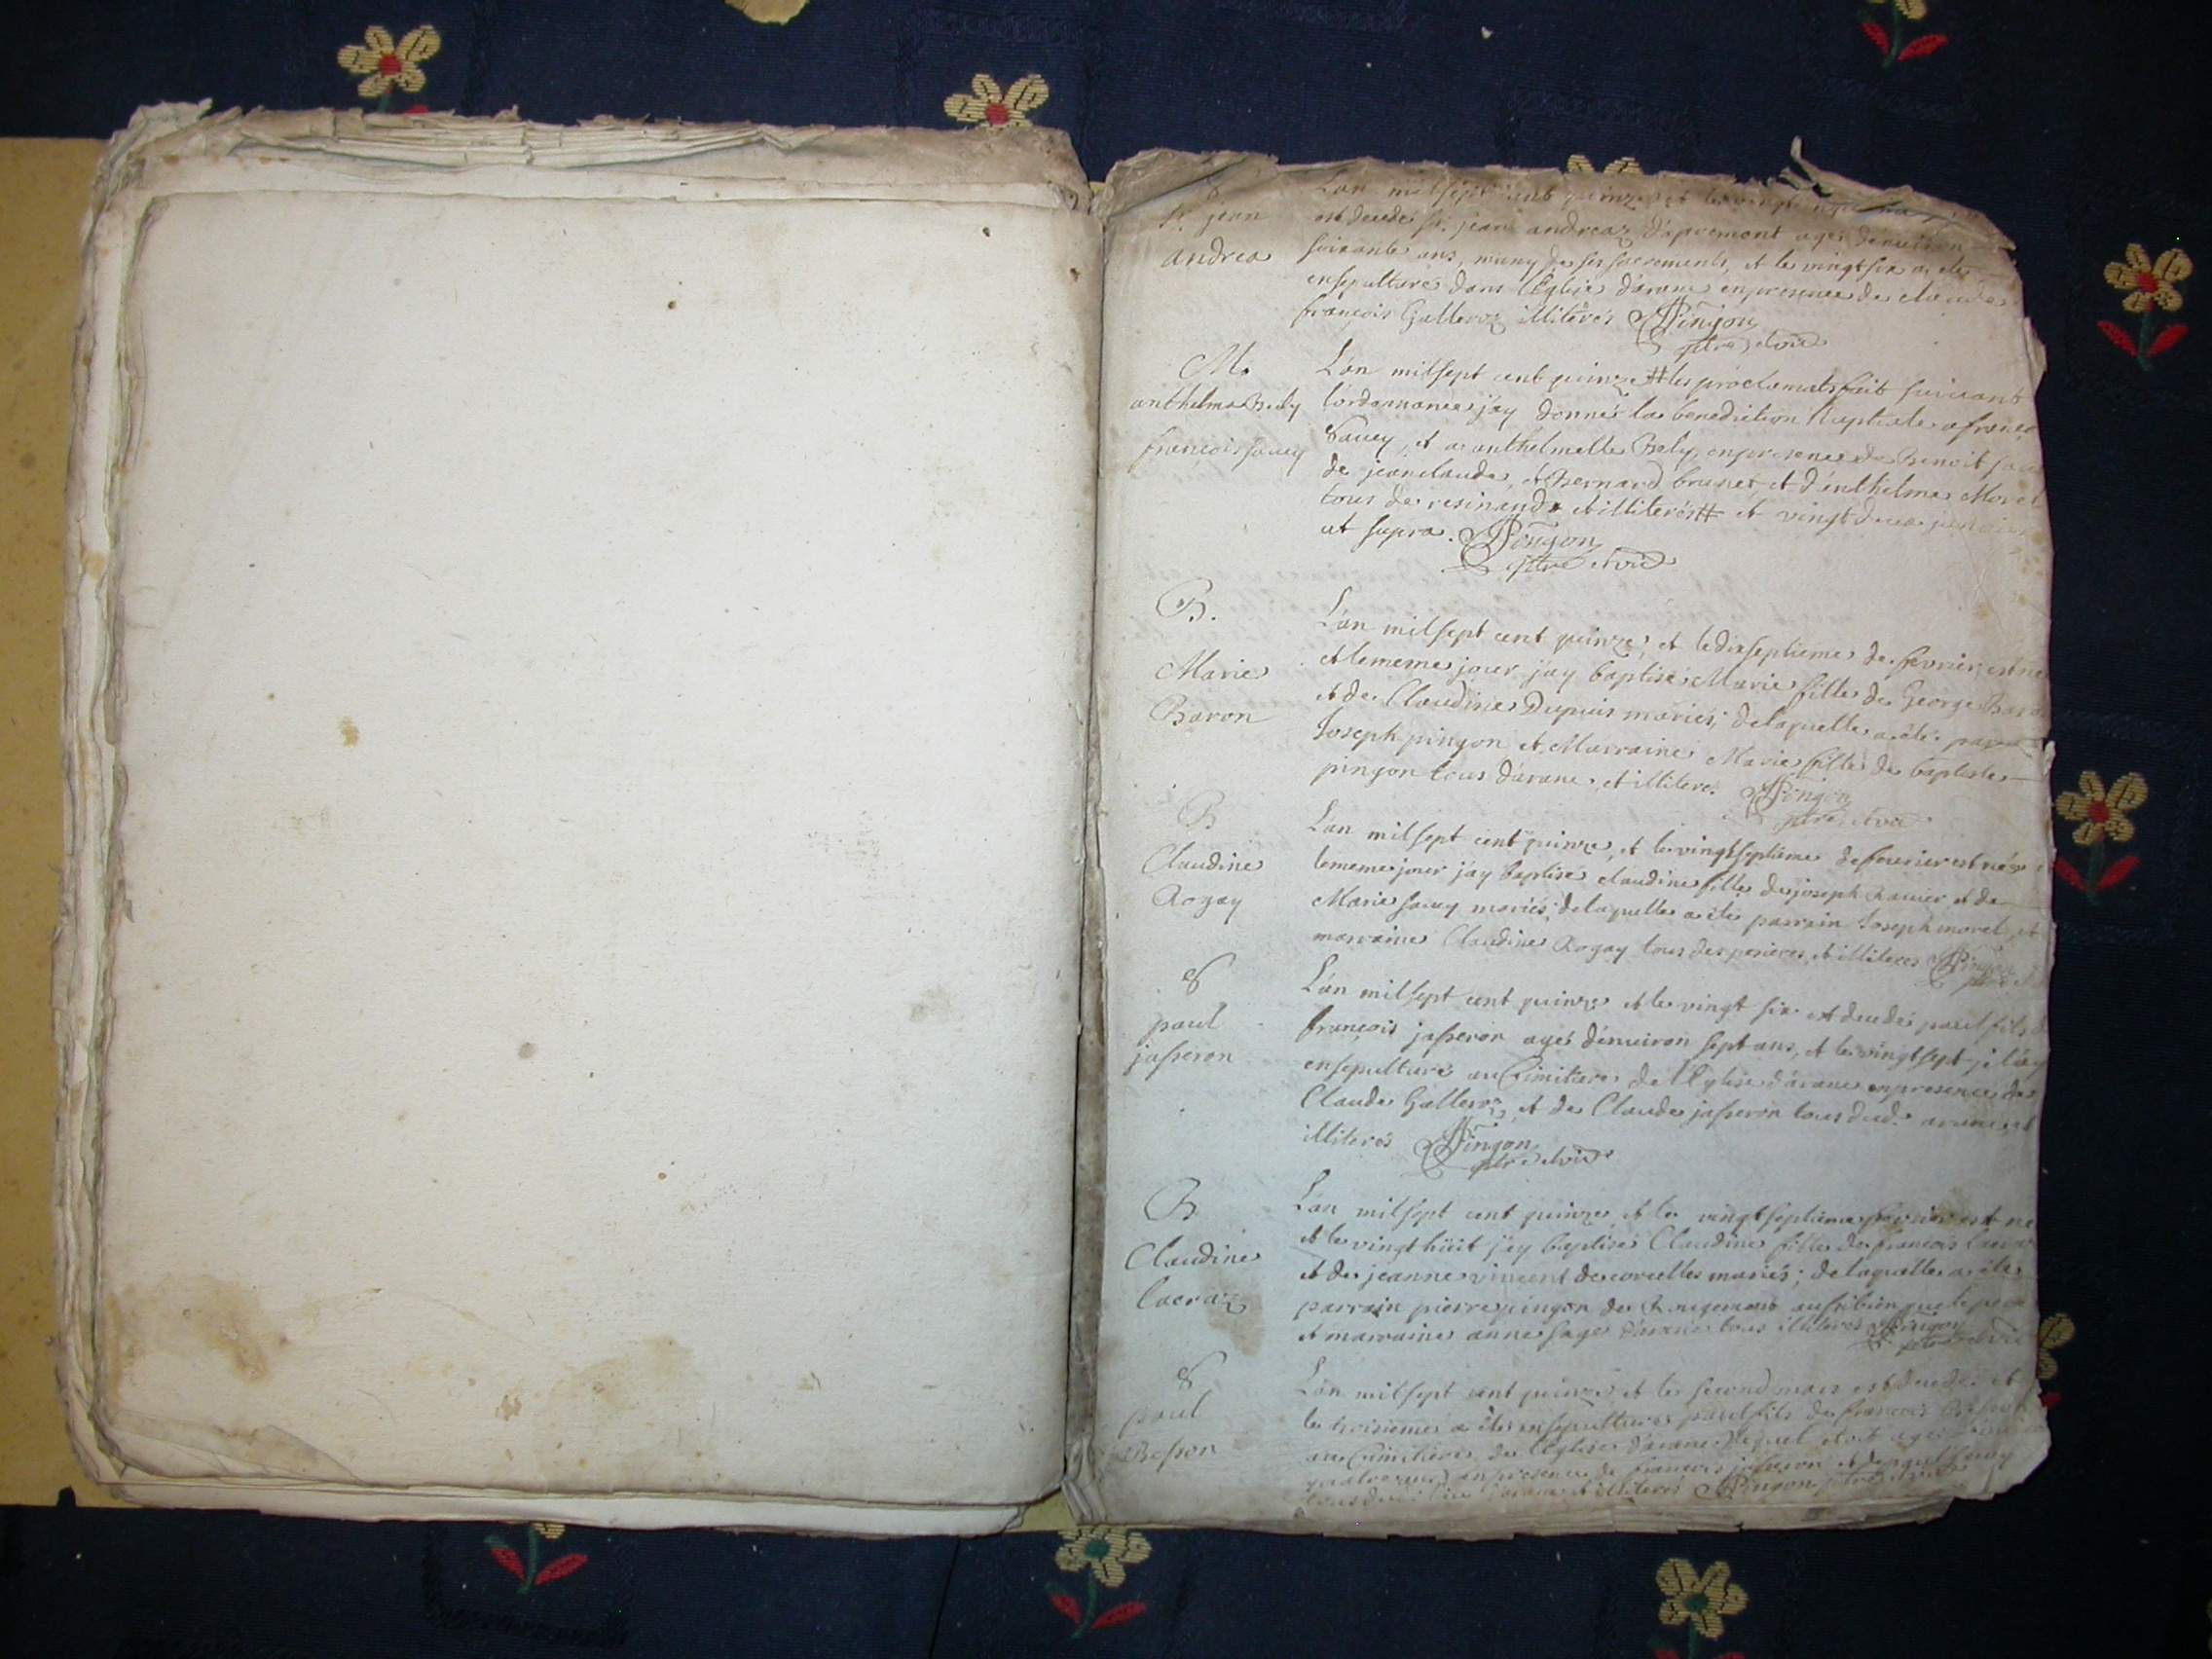 S
Sr. jean
andrea
L'an mil sept cent quinze et le vingt
est decedé sr. jean andreaz d'apremont agé d'enuiron
soixante ans, muny de ses sacrements, et le vingt six a eté
ensepulturé dans l'Eglise d'arane en presence de claude
françois Galleroz illiterés Pingon
ptre et vic
M.
anthelme Bely
francois sauey
L'an mil sept cent quinze # les proclamats fait suiuant
l'ordonnance j'ay donné la benediction Nuptiale a franc
Sauey, et a anthelmette Bely, en presence de Benoit
de jean claude, et Bernard brunet, et d'enthelme Morel
tous de resinand et illiterés # et vingt deux
ut supra. Pingon
ptre et vic
B.
Marie
Baron
L'an mil sept cent quinze, et le dixseptieme de fevrier, est né
et le meme jour j'ay baptisé Marie fille de George Baro
et de Claudine Dupuis mariés; de laquelle a eté
Joseph pingon et Marraine Marie fille de baptiste
pingon tous d'arane, et illiteré. Pingon
ptre et vic
B
Claudine
Rogay
L'an mil sept cent quinze, et le vingtseptieme de feurier est née
le meme jour j'ay baptisé claudine fille de joseph Rauier et de
Marie sauey mariés; de laquelle a eté parrain Joseph morel, et
marraine Claudine Rogay tous des perieres, et illiteres Pingon
ptre
S
paul
jasseron
L'an mil sept cent quinze et le vingt six est decedé paul fils d
françois jasseron agé d'enuiron sept ans, et le vingt sept je l'ay
ensepulturé au Cimitiere de l'Eglise d'arane en presence de
Claude Galleroz, et de Claude jasseron tous dud. arane, et
illiterés Pingon
ptre et vic
B
Claudine
lacraz
L'an mil sept cent quinze et le vingtseptieme fevrier est né
et le vingt huit j'ay baptisé Claudine fille de francois lacra
et de jeanne vincent de corcelles mariés; de laquelle a eté
parrain pierre pingon de Rougemont aussi bien que le pere
et marraine anne sage d'arane tous illiterés Pingon
ptre et vic
S
paul
Besson
L'an mil sept cent quinze et le second mars est decedé et
le troisieme a eté ensepulturé paul fils de francois Besson
au Cimitiere de l'Eglise d'arane lequel etoit agé
quatre ans en presence de francois jasseron et de paul sauey
tous d'arane et illiterés Pingon ptre et vic